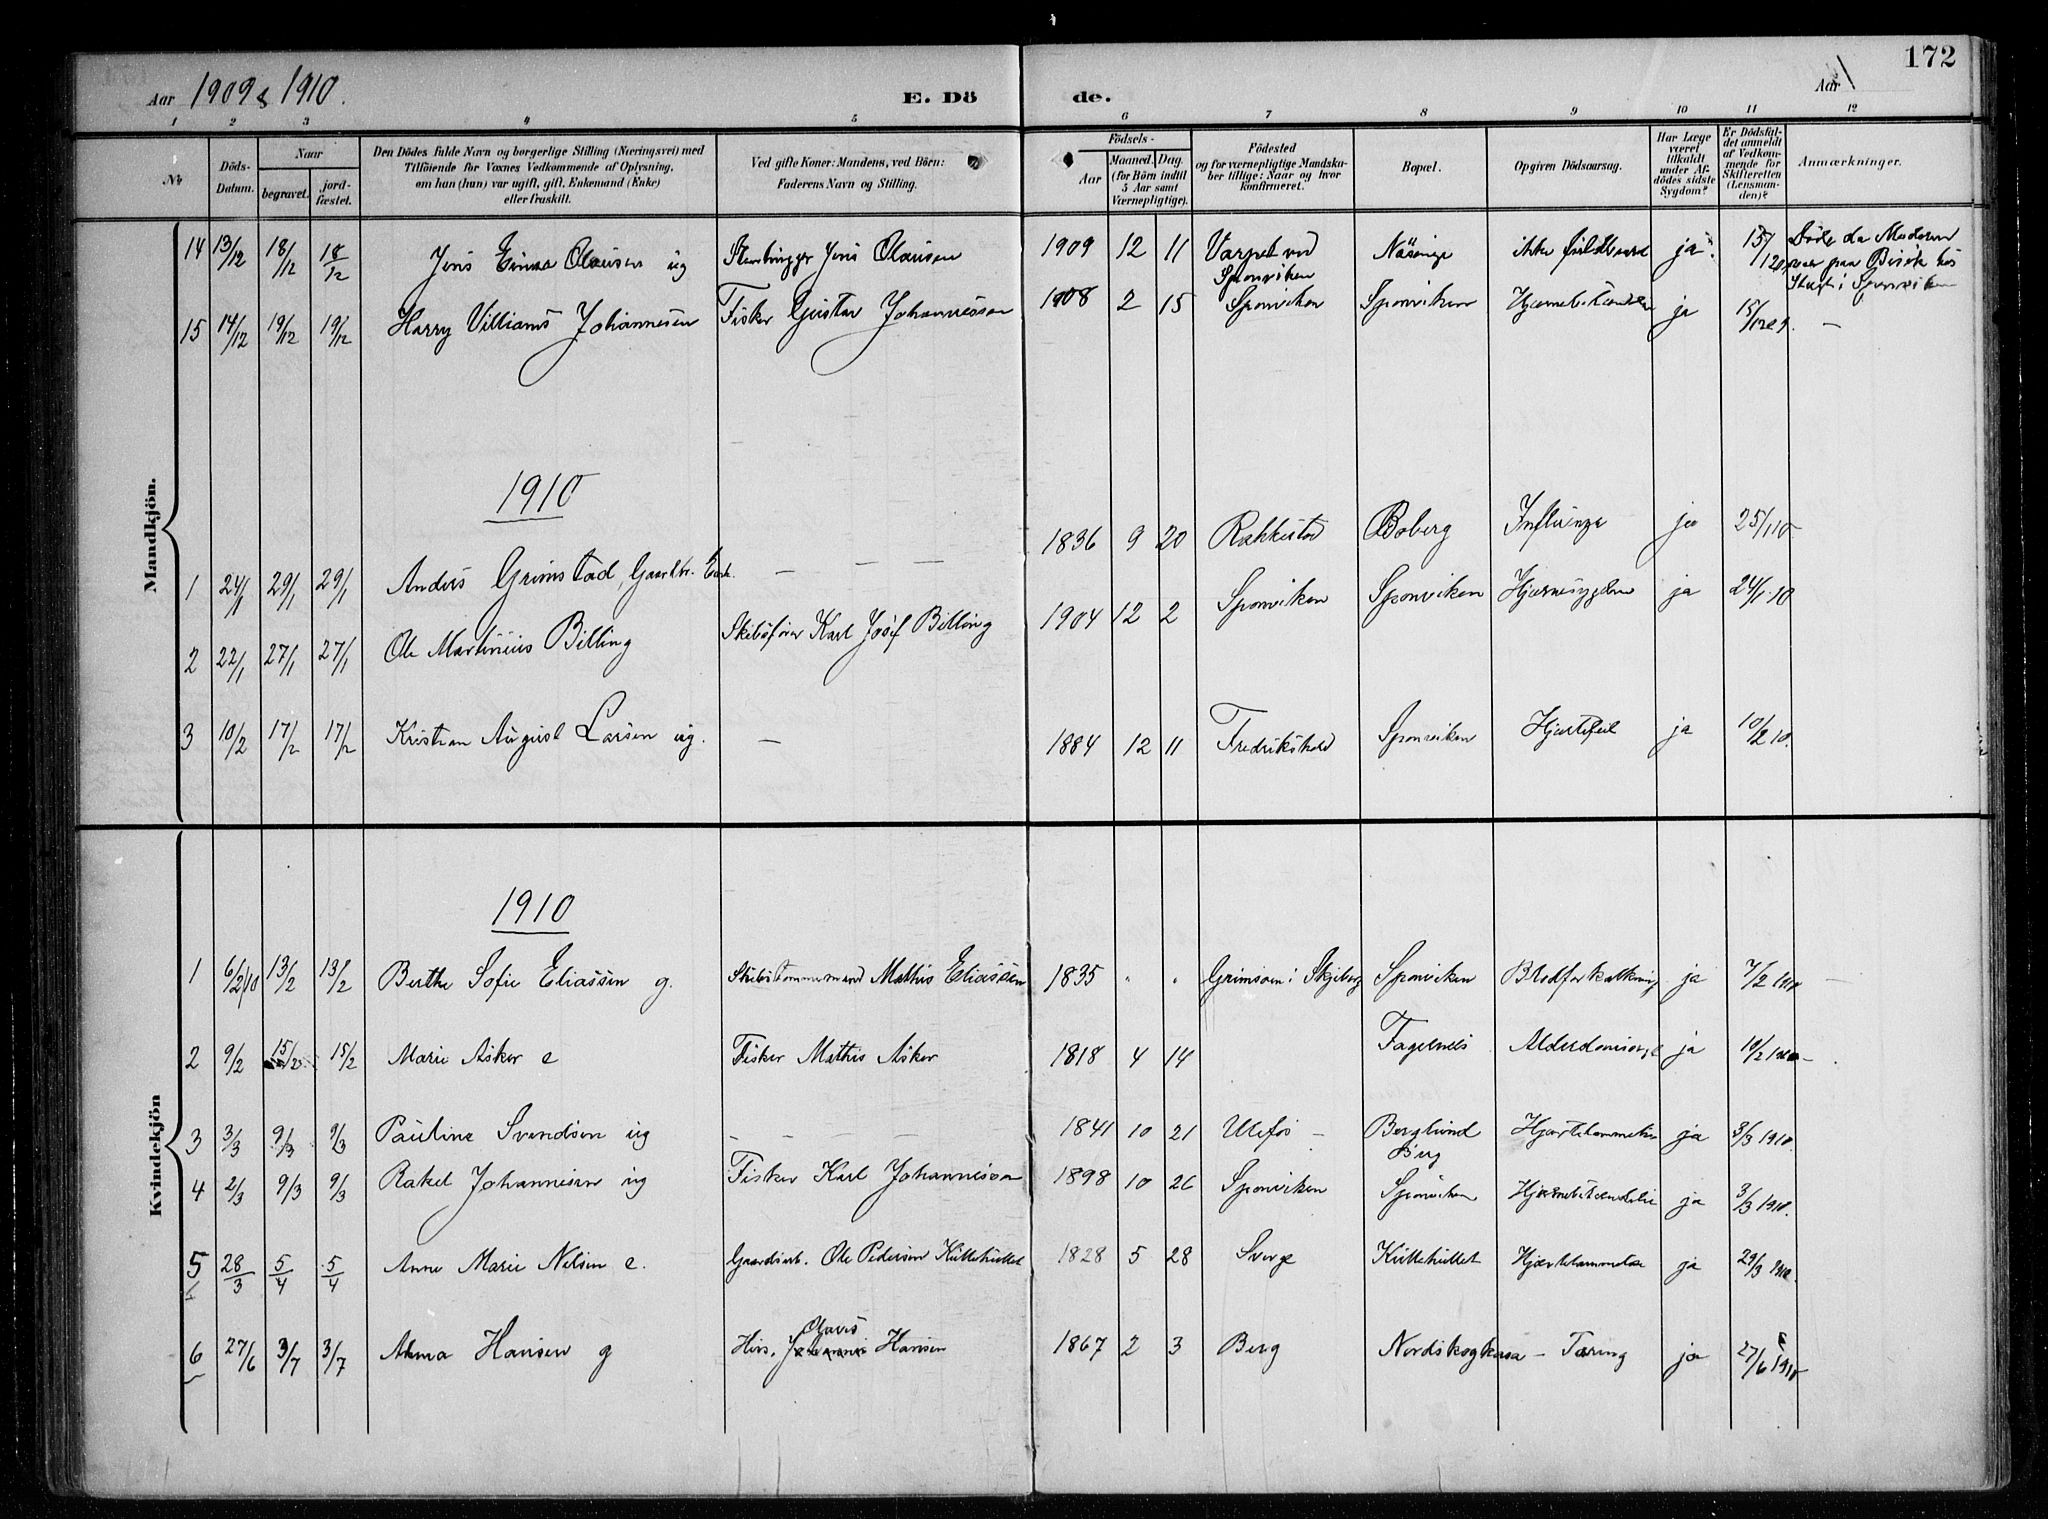 172
Aar 1909 & 1910.
E. Dö de.
Aar
1 2 3 4 5 6 7 8 9 10 11 12
No
Döds-Datum.
Naar
begravet.
jord-fæstet.
Den Dödes fulde Navn og borgerlige Stilling (Næringsvei) med
Tilföiende for Voxnes Vedkommende af Oplysning,
om han (hun) var ugift, gift, Enkemand (Enke)
eller fraskilt.
Ved gifte Koner: Mandens, ved Börn:
Faderens Navn og Stilling.
Födsels-
Aar
Maaned. Dag.
(for Börn indtil
5 Aar samt
Værnepligtige).
Födested
og for værnepligtige Mandska-
ber tillige: Naar og hvor
konfirmeret.
Bopæl.
Opgiven Dödsaarsag.
Har Læge
været
tilkaldt
under Af-
dödes sidste
Sygdom?
Er Dödsfal-
det anmeldt
af Vedkom-
mende for
Skifteretten
(Lensman-
den)?
Anmærkninger.
Mandkjön.
14 13/12 18/12 18/12 Jens Einar Olausen ug Stenhugger Jens Olausen 1909 12 11 Varpet ved Sponviken ikke fuldbaaret ja 15/12 Döde da Moderen
var paa Besök hos
i Sponviken
15 14/12 19/12 19/12 Harry Villiams Johannesen Fisker Gustav Johannesson 1908 2 15 Sponviken Sponviken ja 15/12 09. —
1910
1 24/1 29/1 29/1 Anders Grimstad, Gaardbr. Enk. — — — 1836 9 20 Rakkestad Boberg Influenza ja 25/1 10
2 22/1 27/1 27/1 Ole Martinius Billing Skibsförer Karl Josef Billing 1904 12 2 Sponviken Sponviken Hjernesygdom ja 24/1 10
3 10/2 17/2 17/2 Kristian August Larsen ug. — 1884 12 11 Fredrikshald Sponviken Hjertefeil ja 10/2 10.
Kvindekjön
1910
1 6/2 10 13/2 13/2 Berthe Sofie Eliassen g. Skibstömmermand Mathis Eliassen 1835 " " Grimsöen i Skjeberg Sponviken Blodforkalkning ja 7/2 1910 —
2 9/2 15/2 15/2 Marie Asker e Fisker Mathis Asker 1818 4 14 Fagelnes ja 10/2 1910 —
3 3/3 9/3 9/3 Pauline Svendsen ug — — — 1841 10 21 Ulefos — Berglund
Berg Hjertelammelse ja 3/3 1910.
4 2/3 9/3 9/3 Rakel Johannesen ug Fisker Karl Johannesson 1898 10 26 Sponviken Sponviken Hjernebetændelse ja 3/3 1910.
5 28/3 5/4 5/4 Anne Marie Nilsen e. Gaardarb. Ole Pedersen Kuttehullet 1828 5 28 Sverge Kuttehullet Hjertelammelse ja 29/3 1910.
6 27/6 3/7 3/7 Anna Hansen g Olavis
Hansen 1867 2 3 Berg — Tæring ja 27/6 1910